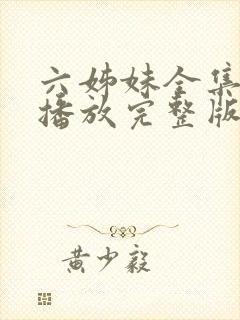 六姊妹全集
播放完整版
黄少毅